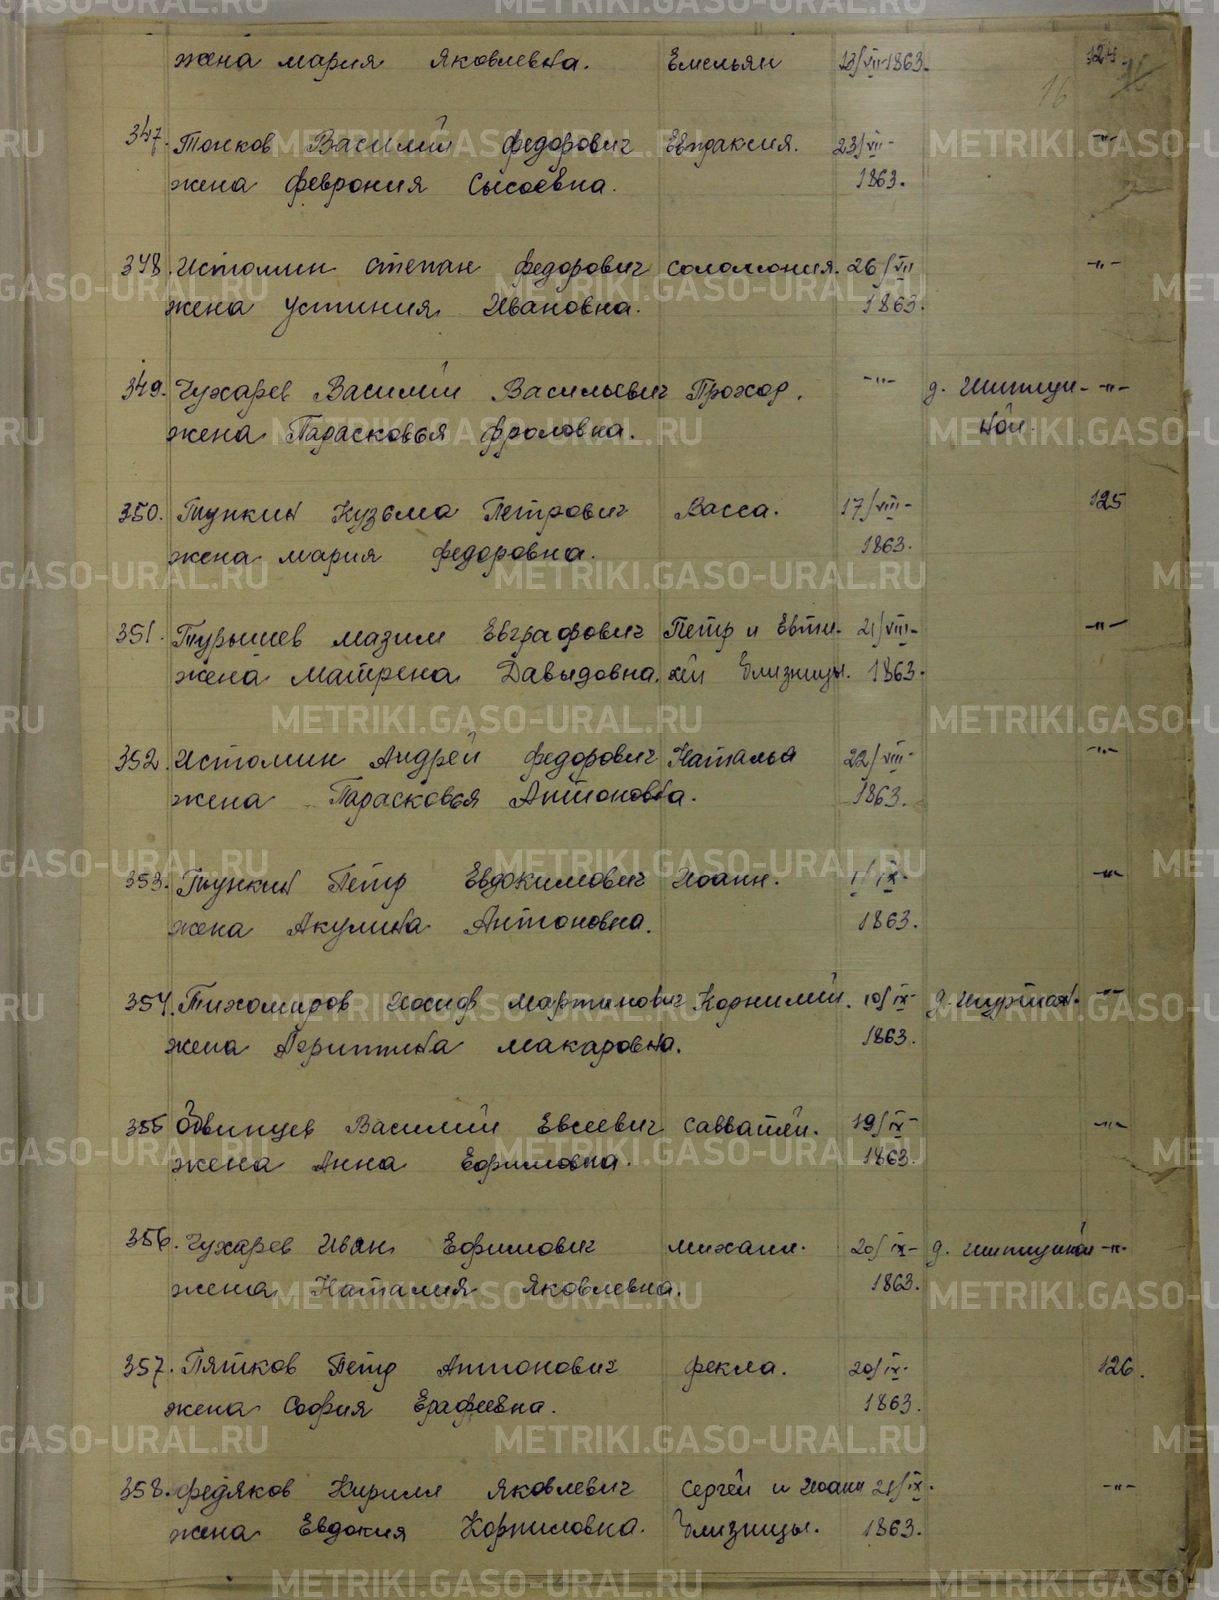 жена Мария Яковлевна. Емельян 13/VII-1863. 124.
16
347. Токков Василий Федорович Евпраксия. 23/VII- -"-
жена Феврония Сысоевна. 1863.
348. Истомин Степан Федорович Соломония. 26/VII -"-
жена Устиния Ивановна. 1863.
349. Чухарев Василий Васильевич Прохор. -"- д. Шипицын- -"-
жена Парасковья Фроловна. ной.
350. Тункин Кузьма Петрович Васса. 17/VIII- 125
жена Мария Федоровна. 1863.
351. Турышев Мазим Евграфович Петр и Евти- 21/VIII- -"-
жена Матрена Давыдовна. хий близницы. 1863.
352. Истомин Андрей Федорович Наталья 22/VIII- -"-
жена Парасковья Антоновна. 1863.
353. Тункин Петр Евдокимович Иоанн. 1/IX- -"-
жена Акулина Антоновна. 1863.
354. Тихомиров Иосиф Мартинович Корнилий. 10/IX- -"-
жена Макаровна. 1863.
355 Василий Евсеевич Савватий. 19/IX- -"-
жена Анна Ефимовна. 1863.
356. Чухарев Иван Ефимович Михаил. 20/IX- д. -"-
жена Наталия Яковлевна. 1863.
357. Пятков Петр Антонович Фекла. 20/IX- 126.
жена София Ерафеевна. 1863.
358. Федяков Кирилл Яковлевич Сергей и Иоанн 21/IX. -"-
жена Евдокия Корниловна. близницы. 1863.
METRIKI.GASO-URAL.RU